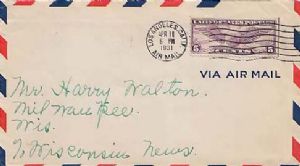 LOS ANGELES, CALIF.
APR 18
6 PM
1931
AIR MAIL
UNITED STATES POSTAGE
5 CENTS 5
VIA AIR MAIL
Mr. Harry Walton.
Milwaukee.
Wis.
℅ Wisconsin News.